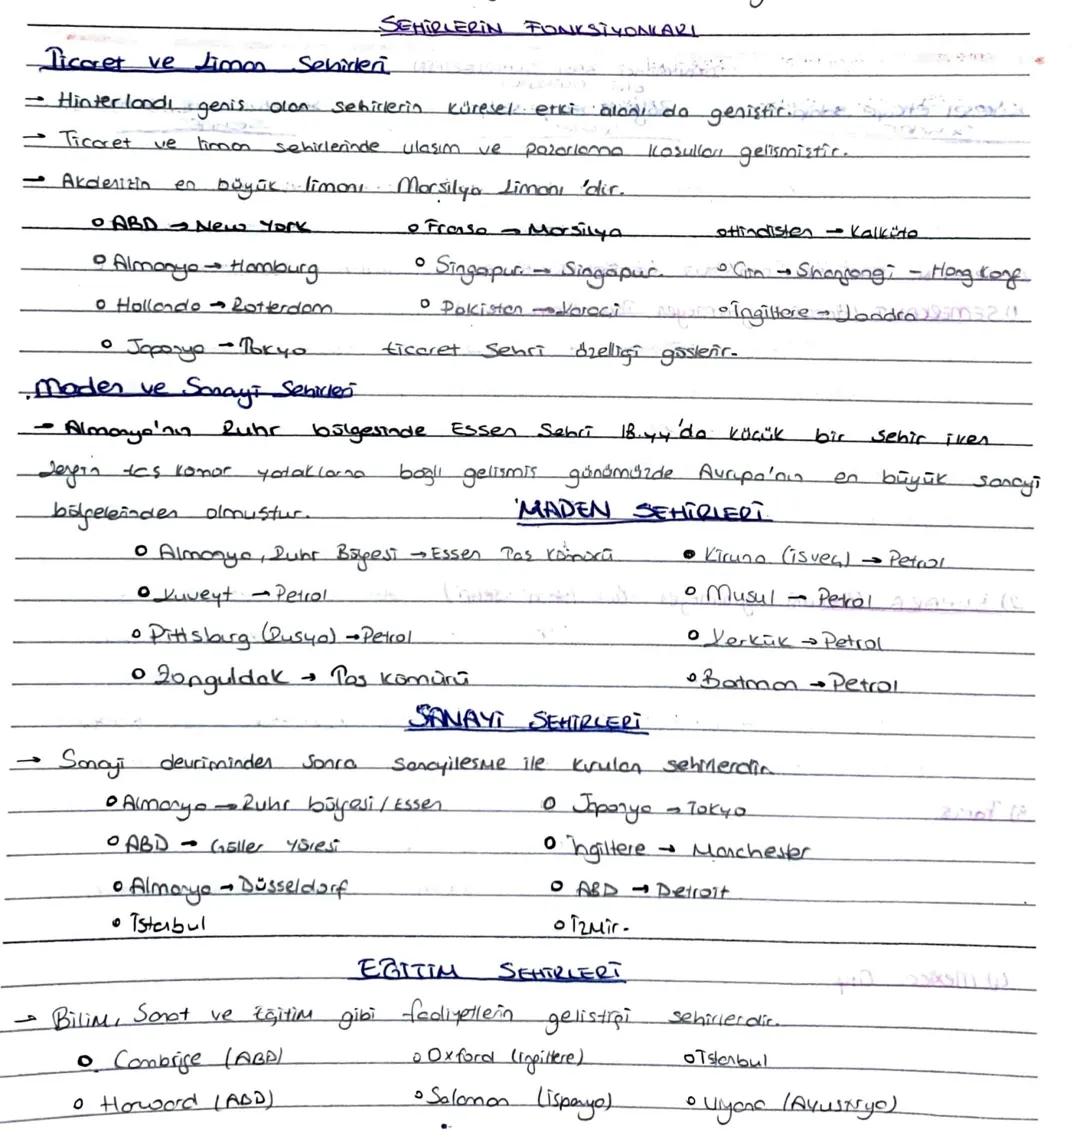 ŞEHİRLERİN FONKSİYONLARI
Ticaret ve Liman Şehirleri
→ Hinterlandı geniş olan şehirlerin küresel etki alanı da geniştir.
→ Ticaret ve liman şehirlerinde ulaşım ve pazarlama koşulları gelişmiştir.
→ Akdenizin en büyük limanı Marsilya Limanı'dir.
o ABD → New York o Fransa → Marsilya o Hindistan → Kalküta
o Almanya → Hamburg o Singapur → Singapur. o Çin → Shangangi - Hong Kong
o Hollanda → Rotterdam o Pakistan → Karaçi o İngiltere → Londra
o Japonya → Tokyo ticaret şehri özelliği gösterir.
Maden ve Sanayi Şehirleri
→ Almanya'nın Ruhr bölgesinde Essen Şehri 18.yy'da küçük bir şehir iken
zengin taş kömür yataklarına bağlı gelişmiş günümüzde Avrupa'nın en büyük sanayi
bölgelerinden olmuştur. MADEN ŞEHİRLERİ
o Almanya, Ruhr Bölgesi → Essen Taş Kömürü • Kiruna (isveç) → Petrol
o Kuveyt → Petrol o Musul → Petrol
o Pittsburg (Rusya) → Petrol o Kerkük → Petrol
o Zonguldak → Taş kömürü o Batman → Petrol
SANAYİ ŞEHİRLERİ
→ Sanayi devriminden sonra sanayileşme ile kurulan şehirlerdir.
o Almanya → Ruhr bölgesi / Essen o Japonya → Tokyo
o ABD → Göller Yöresi o İngiltere → Manchester
o Almanya → Düsseldorf o ABD → Detroit
• İstanbul o İzmir.
EĞİTİM ŞEHİRLERİ
→ Bilim, Sanat ve Eğitim gibi faaliyetlerin geliştiği şehirlerdir.
o Cambrige (ABD) o Oxford (İngiltere) o İstanbul
o Harward (ABD) o Salaman (İspanya) o Viyana (Avusturya)